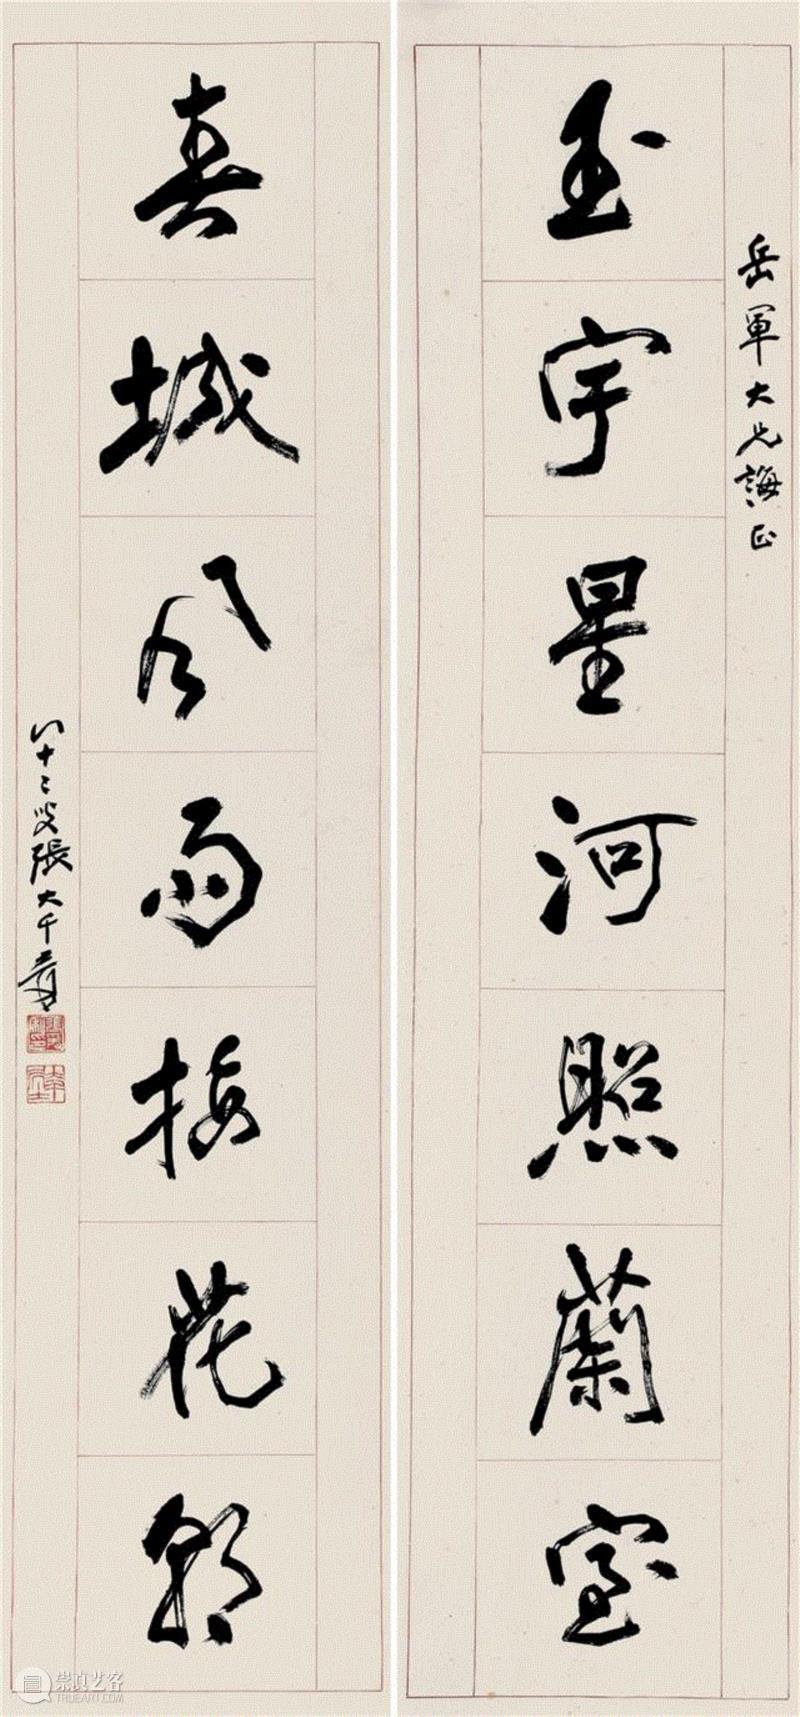 岳軍大兄誨正
玉宇星河照蘭室
春城風雨接花朝
八十二叟張大千爰
崇真艺客
TRUEART.COM